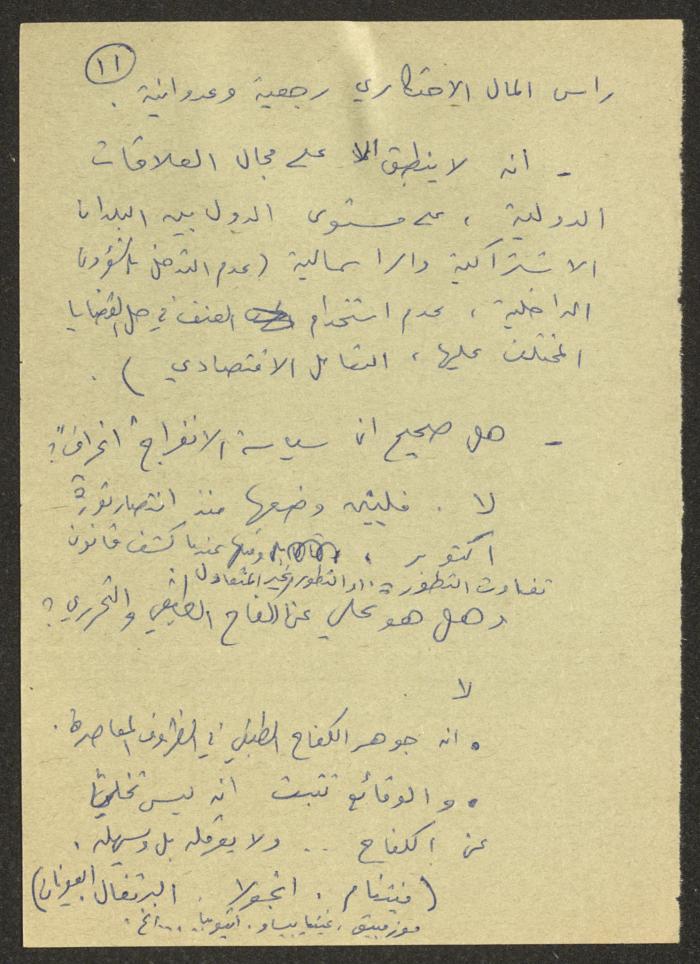 ١١
راس المال الاحتكاري رجعية وعدوانية .
- انه لا ينطبق الا على مجال العلاقات
الدولية ، على مستوى الدول بين البلدان
الاشتراكية والراسمالية (عدم التدخل بالشؤون
الداخلية ، عدم استخدام العنف في حل القضايا
المختلف عليها ، التعامل الاقتصادي ) .
- هل صحيح ان سياسة الانفراج "انحراف"؟
لا . فلينين وضعها منذ انتصار ثورة
اكتوبر ، وقبلها عندما كشف قانون
تفاوت التطور .. او التطور غير المتعادل
وهل هو تخلي عن الكفاح الطبقي والتحرري ؟
لا
• انه جوهر الكفاح الطبقي في الظروف المعاصرة .
• والوقائع تثبت انه ليس تخليا
عن الكفاح .. ولا يعرقله بل ويسهله .
(فيتنام . انجولا . البرتغال اليونان)
موزمبيق . غينيا بيساو . اثيوبيا ... الخ .